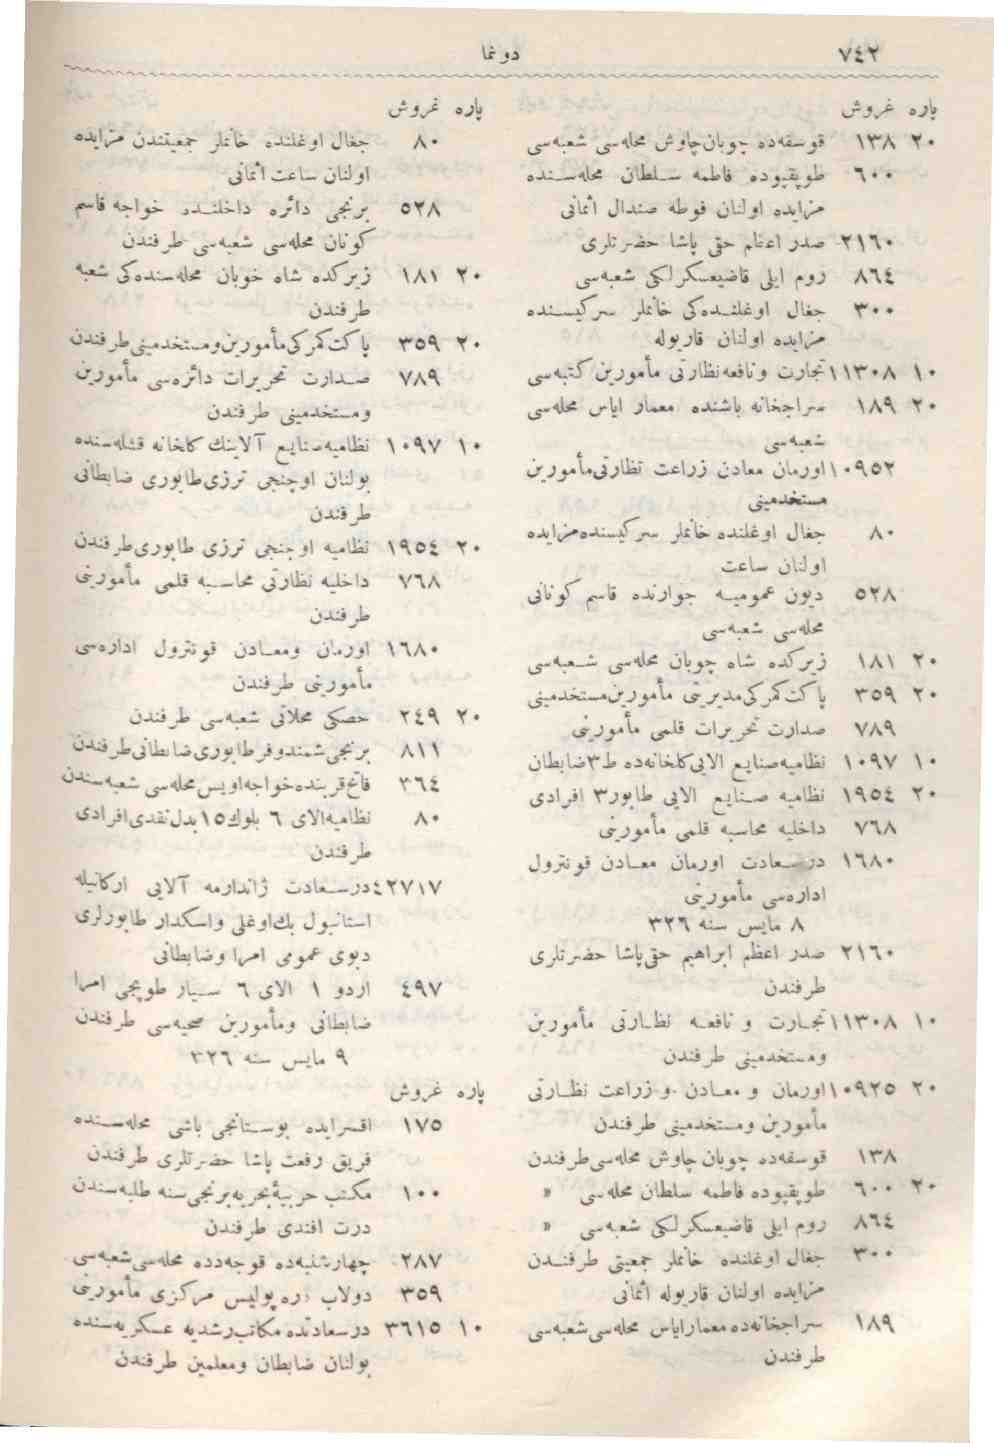 ٧٤٢
دونما
پاره غروش
٢٠ ١٣٨ قوسقه‌ده چوبان‌چاوش محله‌سی شعبه‌سی
٦٠٠ طوپقپوده فاطمه سلطان محله‌سنده
مزایده اولنان فوطه صندال اثمانی
٢١٦٠ صدر اعظم حقی پاشا حضرتلری
٨٦٤ روم ایلی قاضیعسکرلکی شعبه‌سی
٣٠٠ جغال اوغلنده‌کی خانملر سرکیسنده
مزایده اولنان قاریوله
١٠ ١١٣٠٨ تجارت ونافعه‌نظارتی مأمورین کتبه‌سی
٢٠ ١٨٩ سراجخانه باشنده معمار ایاس محله‌سی
شعبه‌سی
١٠٩٥٢ اورمان معادن زراعت نظارتی‌مأمورین
مستخدمینی
٨٠ جغال اوغلنده خانملر سرکیسنده‌مزایده
اولنان ساعت
٥٢٨ دیون عمومیه جوارنده قاسم کونانی
محله‌سی شعبه‌سی
٢٠ ١٨١ زیرکده شاه چوبان محله‌سی شعبه‌سی
٢٠ ٣٥٩ پاکت‌کمرکی‌مدیریتی مأمورین‌مستخدمینی
٧٨٩ صدارت تحریرات قلمی مأمورینی
١٠ ١٠٩٧ نظامیه‌صنایع الایی‌کلخانه‌ده ط٣ضابطان
٢٠ ١٩٥٤ نظامیه صنایع الایی طابور٣ افرادی
٧٦٨ داخلیه محاسبه قلمی مأمورینی
١٦٨٠ درسعادت اورمان معادن قونترول
اداره‌سی مأمورینی
٨ مایس سنه ٣٢٦
٢١٦٠ صدر اعظم ابراهیم حقی‌پاشا حضرتلری
طرفندن
١٠ ١١٣٠٨ تجارت و نافعه نظارتی مأمورین
ومستخدمینی طرفندن
٢٠ ١٠٩٢٥ اورمان و معادن و زراعت نظارتی
مأمورین ومستخدمینی طرفندن
١٣٨ قوسقه‌ده چوبان چاوش محله‌سی‌طرفندن
٢٠ ٦٠٠ طوپقپوده فاطمه سلطان محله‌سی »
٨٦٤ روم ایلی قاضیعسکرلکی شعبه‌سی »
٣٠٠ جغال اوغلنده خانملر جمعیتی طرفندن
مزایده اولنان قاریوله اثمانی
١٨٩ سراجخانه‌ده معمارایاس محله‌سی شعبه‌سی
طرفندن
پاره غروش
٨٠ جغال اوغلنده خانملر جمعیتندن مزایده
اولنان ساعت اثمانی
٥٢٨ برنجی دائره داخلنده خواجه قاسم
کونان محله‌سی شعبه‌سی طرفندن
٢٠ ١٨١ زیرکده شاه خوبان محله‌سنده‌کی شعبه
طرفندن
٢٠ ٣٥٩ پاکت‌کمرکی‌مأمورین‌ومستخدمینی‌طرفندن
٧٨٩ صدارت تحریرات دائره‌سی مأمورین
ومستخدمینی طرفندن
١٠ ١٠٩٧ نظامیه‌صنایع آلاینك کلخانه قشله‌سنده
بولنان اوچنجی ترزی‌طابوری ضابطانی
طرفندن
٢٠ ١٩٥٤ نظامیه اوچنجی ترزی طابوری‌طرفندن
٧٦٨ داخلیه نظارتی محاسبه قلمی مأمورینی
طرفندن
١٦٨٠ اورمان ومعادن قونترول اداره‌سی
مأمورینی طرفندن
٢٠ ٢٤٩ حصکی محلاتی شعبه‌سی طرفندن
٨١١ برنجی‌شمندوفرطابوری‌ضابطانی‌طرفندن
٣٦٤ فاتح‌قربنده‌خواجه‌اویس‌محله‌سی شعبه‌سندن
٨٠ نظامیه‌الای ٦ بلوك١٥بدل‌نقدی‌افرادی
طرفندن
٤٢٧١٧ درسعادت ژاندارمه آلایی ارکانیله
استانبول بك‌اوغلی واسکدار طابورلری
دبوی عمومی امرا وضابطانی
٤٩٧ اردو ١ الای ٦ سیار طوپجی امرا
ضابطانی ومأمورین صحیه‌سی طرفندن
٩ مایس سنه ٣٢٦
پاره غروش
١٧٥ اقسرایده بوستانجی باشی محله‌سنده
فریق رفعت پاشا حضرتلری طرفندن
١٠٠ مکتب حربیۀ‌بحریه‌برنجی‌سنه طلبه‌سندن
درت افندی طرفندن
٢٨٧ چهارشنبه‌ده قوجه‌دده محله‌سی‌شعبه‌سی
٣٥٩ دولاب دره‌پولیس مرکزی مأمورینی
١٠ ٣٦١٥ درسعادتده مکاتب‌رشدیه عسکریه‌سنده
بولنان ضابطان ومعلمین طرفندن